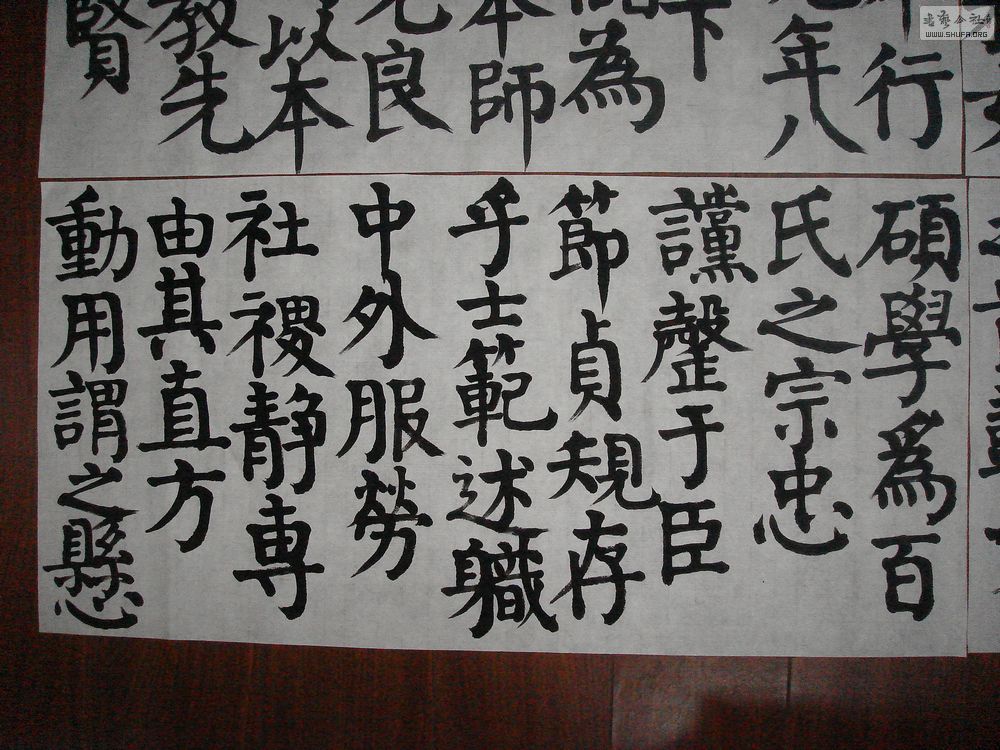 书艺公社
WWW.SHUFA.ORG
行
元年八
下
為
本師
元良
以本
教先
賢
碩學為百
氏之宗忠
讜罄于臣
節貞規存
乎士範述職
中外服勞
社稷静專
由其直方
動用謂之懸